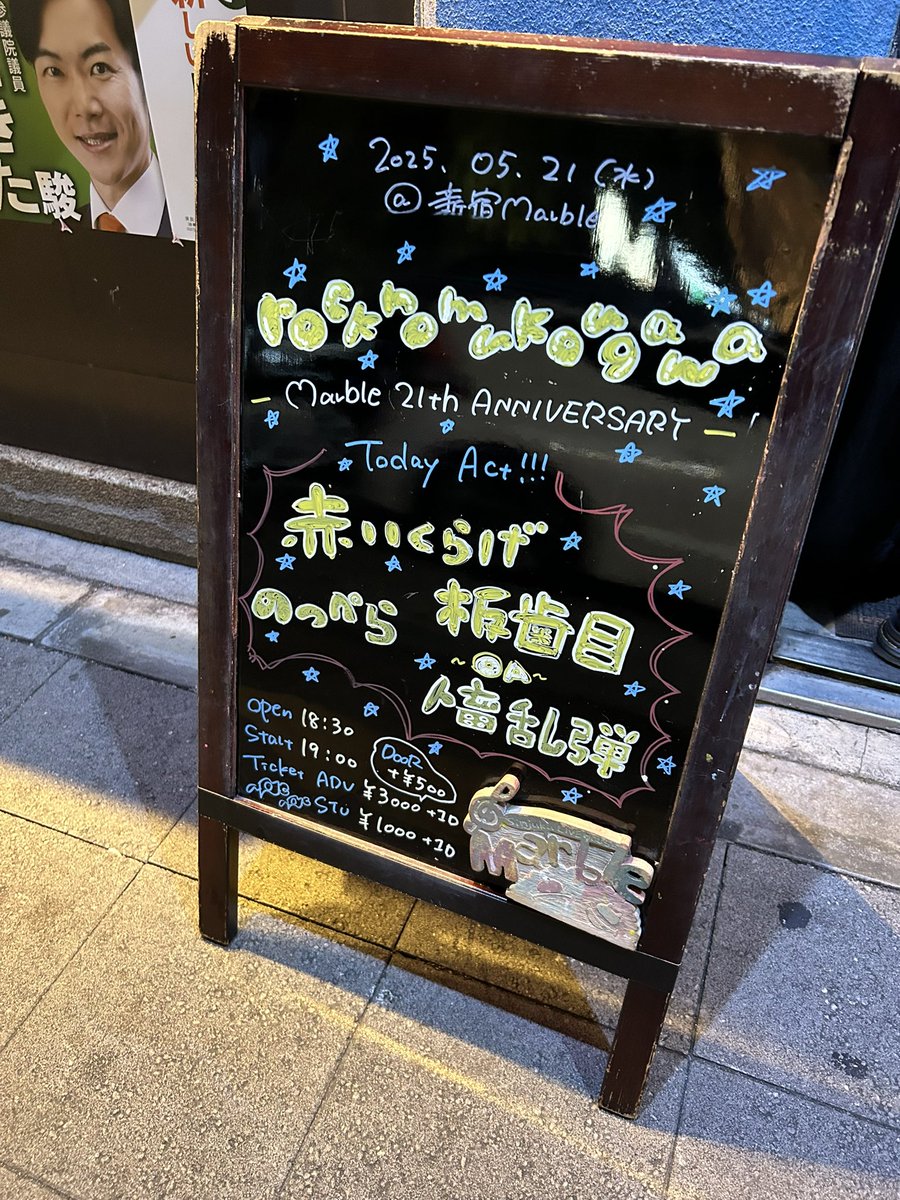 参議院議員
た駿
新しい
2025.05.21(水)
@新宿Marble
rocknomukougawa
Marble 21th ANNIVERSARY
Today Act!!!
赤いくらげ
のっぺら 板歯目
~OA~
人畜乱弾
Open 18:30
Start 19:00
DOOR
+¥500
Ticket ADV ¥3000+1D
STU ¥1000+1D
Marble